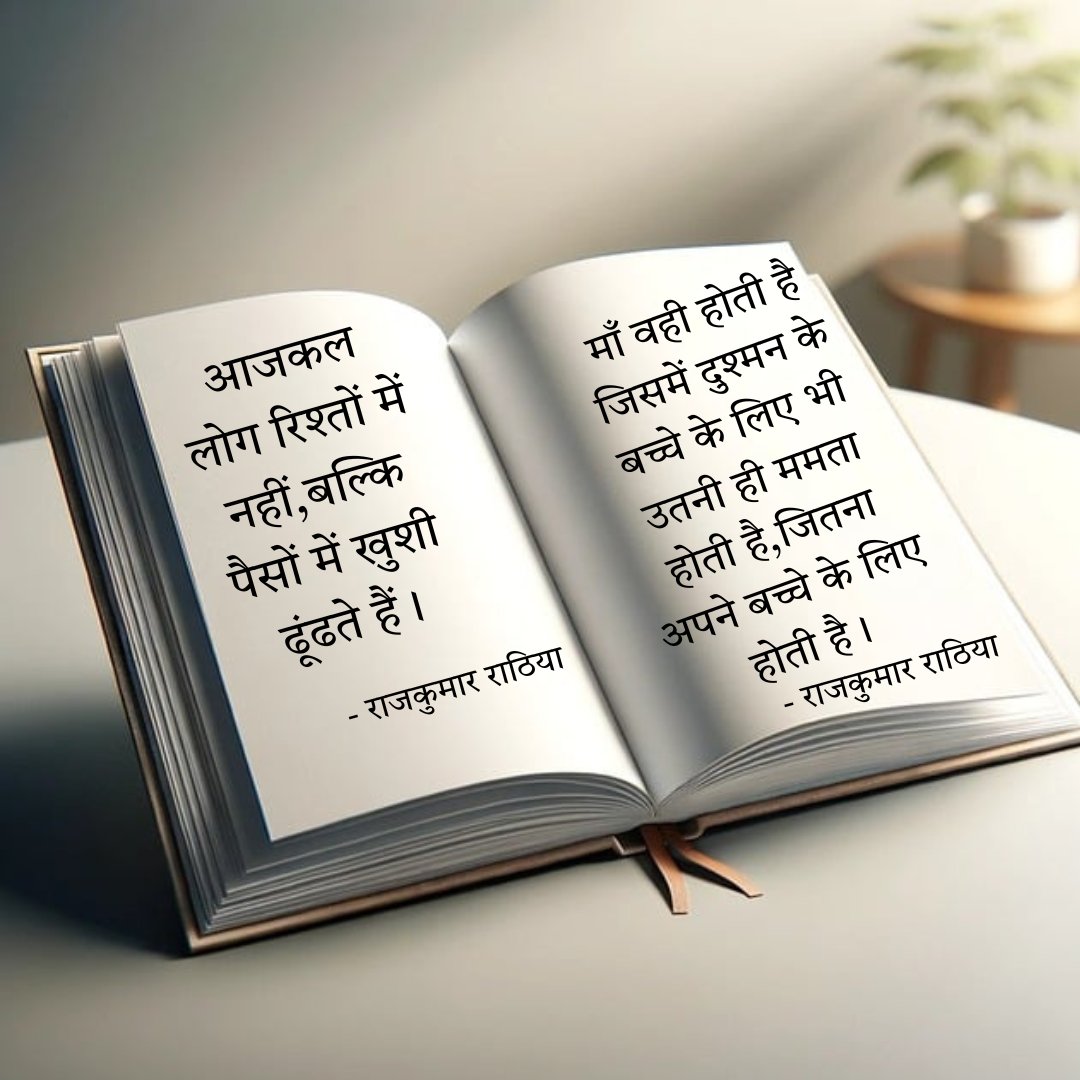 आजकल
लोग रिश्तों में
नहीं,बल्कि
पैसों में खुशी
ढूंढते हैं।
- राजकुमार राठिया
माँ वही होती है
जिसमें दुश्मन के
बच्चे के लिए भी
उतनी ही ममता
होती है,जितना
अपने बच्चे के लिए
होती है।
- राजकुमार राठिया